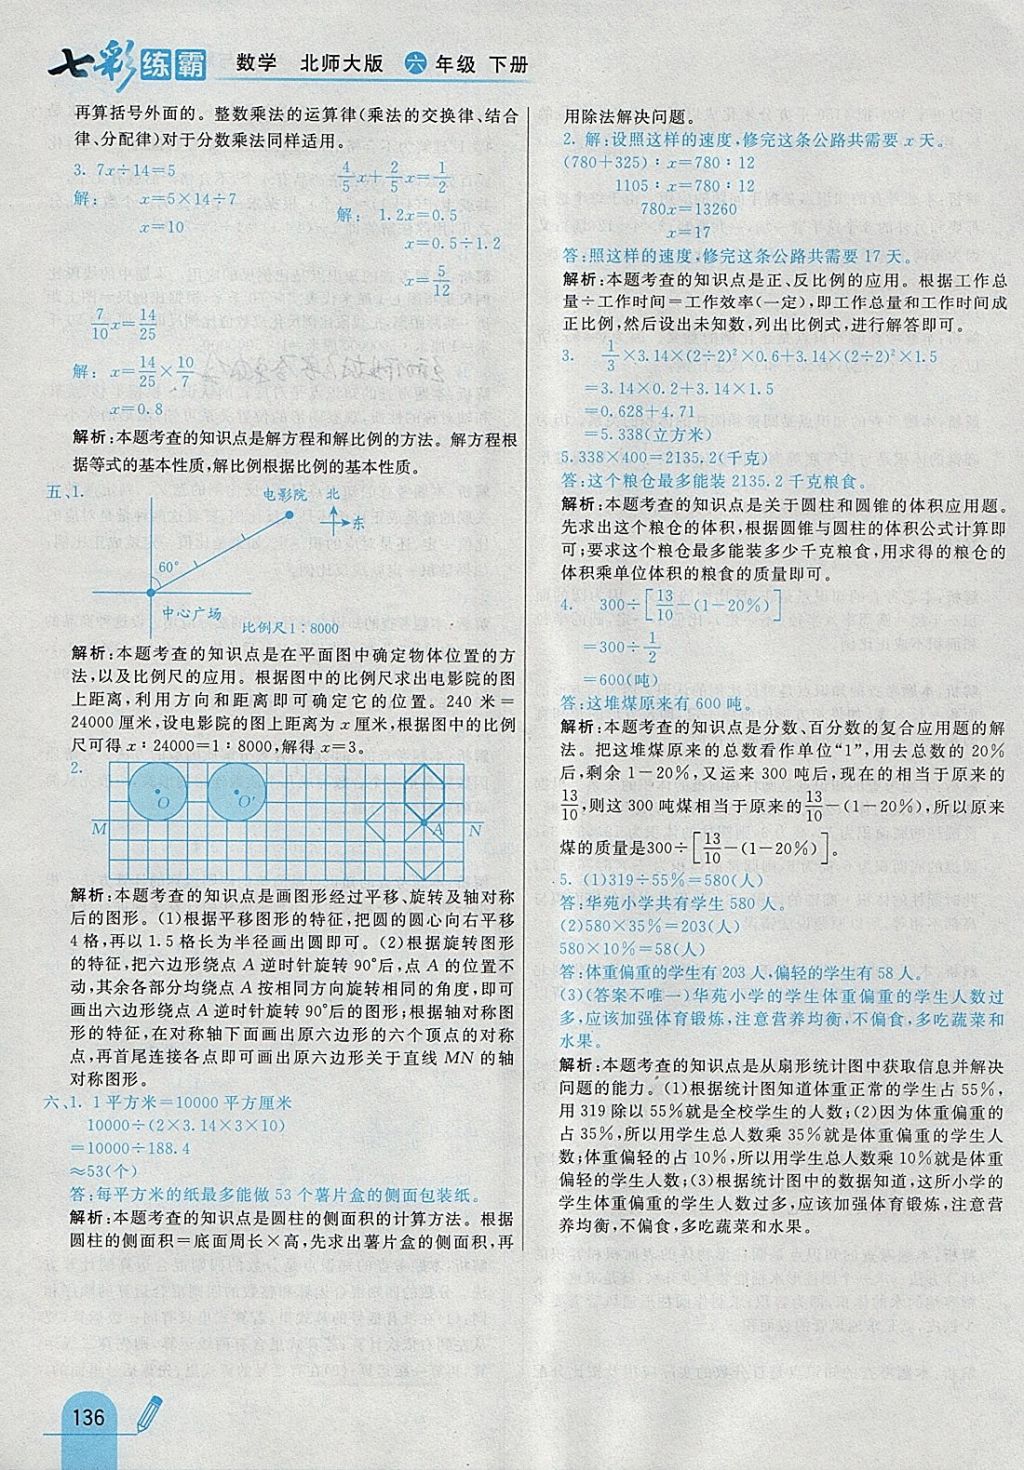 七彩练霸 数学 北师大版 六年级 下册
再算括号外面的。整数乘法的运算律(乘法的交换律、结合
律、分配律)对于分数乘法同样适用。
3. 7x÷14=5
解: x=5×14÷7
x=10
4/5x+2/5x=1/2
解: 1.2x=0.5
x=0.5÷1.2
x=5/12
7/10x=14/25
解: x=14/25×10/7
x=0.8
解析:本题考查的知识点是解方程和解比例的方法。解方程根
据等式的基本性质,解比例根据比例的基本性质。
五、1.
电影院 北
东
60°
中心广场
比例尺1∶8000
解析:本题考查的知识点是在平面图中确定物体位置的方
法,以及比例尺的应用。根据图中的比例尺求出电影院的图
上距离,利用方向和距离即可确定它的位置。240 米=
24000 厘米,设电影院的图上距离为 x 厘米,根据图中的比例
尺可得 x∶24000=1∶8000,解得 x=3。
2.
O O′
M A N
解析:本题考查的知识点是画图形经过平移、旋转及轴对称
后的图形。(1)根据平移图形的特征,把圆的圆心向右平移
4 格,再以 1.5 格长为半径画出圆即可。(2)根据旋转图形
的特征,把六边形绕点 A 逆时针旋转 90°后,点 A 的位置不
动,其余各部分均绕点 A 按相同方向旋转相同的角度,即可
画出六边形绕点 A 逆时针旋转 90°后的图形;根据轴对称图
形的特征,在对称轴下面画出原六边形的六个顶点的对称
点,再首尾连接各点即可画出原六边形关于直线 MN 的轴
对称图形。
六、1. 1 平方米=10000 平方厘米
10000÷(2×3.14×3×10)
=10000÷188.4
≈53(个)
答:每平方米的纸最多能做 53 个薯片盒的侧面包装纸。
解析:本题考查的知识点是圆柱的侧面积的计算方法。根据
圆柱的侧面积=底面周长×高,先求出薯片盒的侧面积,再
用除法解决问题。
2. 解:设照这样的速度,修完这条公路共需要 x 天。
(780+325)∶x=780∶12
1105∶x=780∶12
780x=13260
x=17
答:照这样的速度,修完这条公路共需要 17 天。
解析:本题考查的知识点是正、反比例的应用。根据工作总
量÷工作时间=工作效率(一定),即工作总量和工作时间成
正比例,然后设出未知数,列出比例式,进行解答即可。
3. 1/3×3.14×(2÷2)²×0.6+3.14×(2÷2)²×1.5
=3.14×0.2+3.14×1.5
=0.628+4.71
=5.338(立方米)
5.338×400=2135.2(千克)
答:这个粮仓最多能装 2135.2 千克粮食。
解析:本题考查的知识点是关于圆柱和圆锥的体积应用题。
先求出这个粮仓的体积,根据圆锥与圆柱的体积公式计算即
可;要求这个粮仓最多能装多少千克粮食,用求得的粮仓的
体积乘单位体积的粮食的质量即可。
4. 300÷[13/10-(1-20%)]
=300÷1/2
=600(吨)
答:这堆煤原来有 600 吨。
解析:本题考查的知识点是分数、百分数的复合应用题的解
法。把这堆煤原来的总数看作单位“1”,用去总数的 20%
后,剩余 1-20%,又运来 300 吨后,现在的相当于原来的
13/10,则这 300 吨煤相当于原来的13/10-(1-20%),所以原来
煤的质量是300÷[13/10-(1-20%)]。
5. (1)319÷55%=580(人)
答:华苑小学共有学生 580 人。
(2)580×35%=203(人)
580×10%=58(人)
答:体重偏重的学生有 203 人,偏轻的学生有 58 人。
(3)(答案不唯一)华苑小学的学生体重偏重的学生人数过
多,应该加强体育锻炼,注意营养均衡,不偏食,多吃蔬菜和
水果。
解析:本题考查的知识点是从扇形统计图中获取信息并解决
问题的能力。(1)根据统计图知道体重正常的学生占 55%,
用 319 除以 55%就是全校学生的人数;(2)因为体重偏重的
占 35%,所以用学生总人数乘 35%就是体重偏重的学生人
数;体重偏轻的占 10%,所以用学生总人数乘 10%就是体重
偏轻的学生人数;(3)根据统计图中的数据知道,这所小学的
学生体重偏重的学生人数过多,应该加强体育锻炼,注意营
养均衡,不偏食,多吃蔬菜和水果。
136